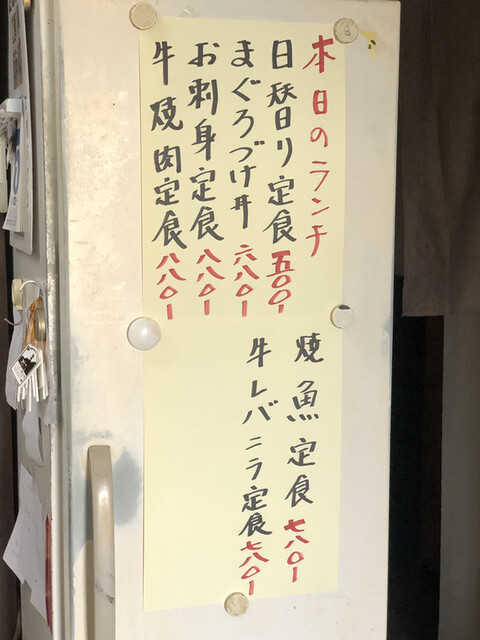 本日のランチ
日替り定食 五〇〇-
まぐろづけ丼 六八〇-
お刺身定食 八八〇-
牛焼肉定食 八八〇-
焼魚定食 七八〇-
牛レバニラ定食 七八〇-